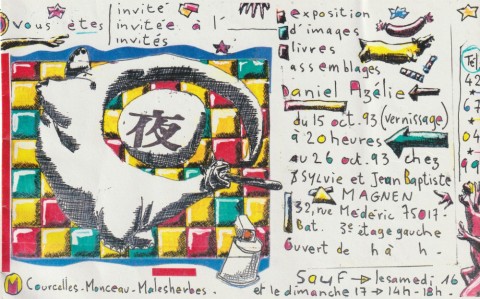 vous êtes
invité
invitée à l'
invités
exposition
d'images
livres
assemblages
Daniel Azélie
du 15 oct. 93 (vernissage)
à 20 heures
au 26 oct. 93 chez
Sylvie et Jean Baptiste
MAGNEN
32, rue Médéric 75017.
Bat. 3e étage gauche
ouvert de h à h.
Sauf → le samedi 16
et le dimanche 17 → 14h-18h.
夜
M Courcelles-Monceau-Malesherbes.
Tél